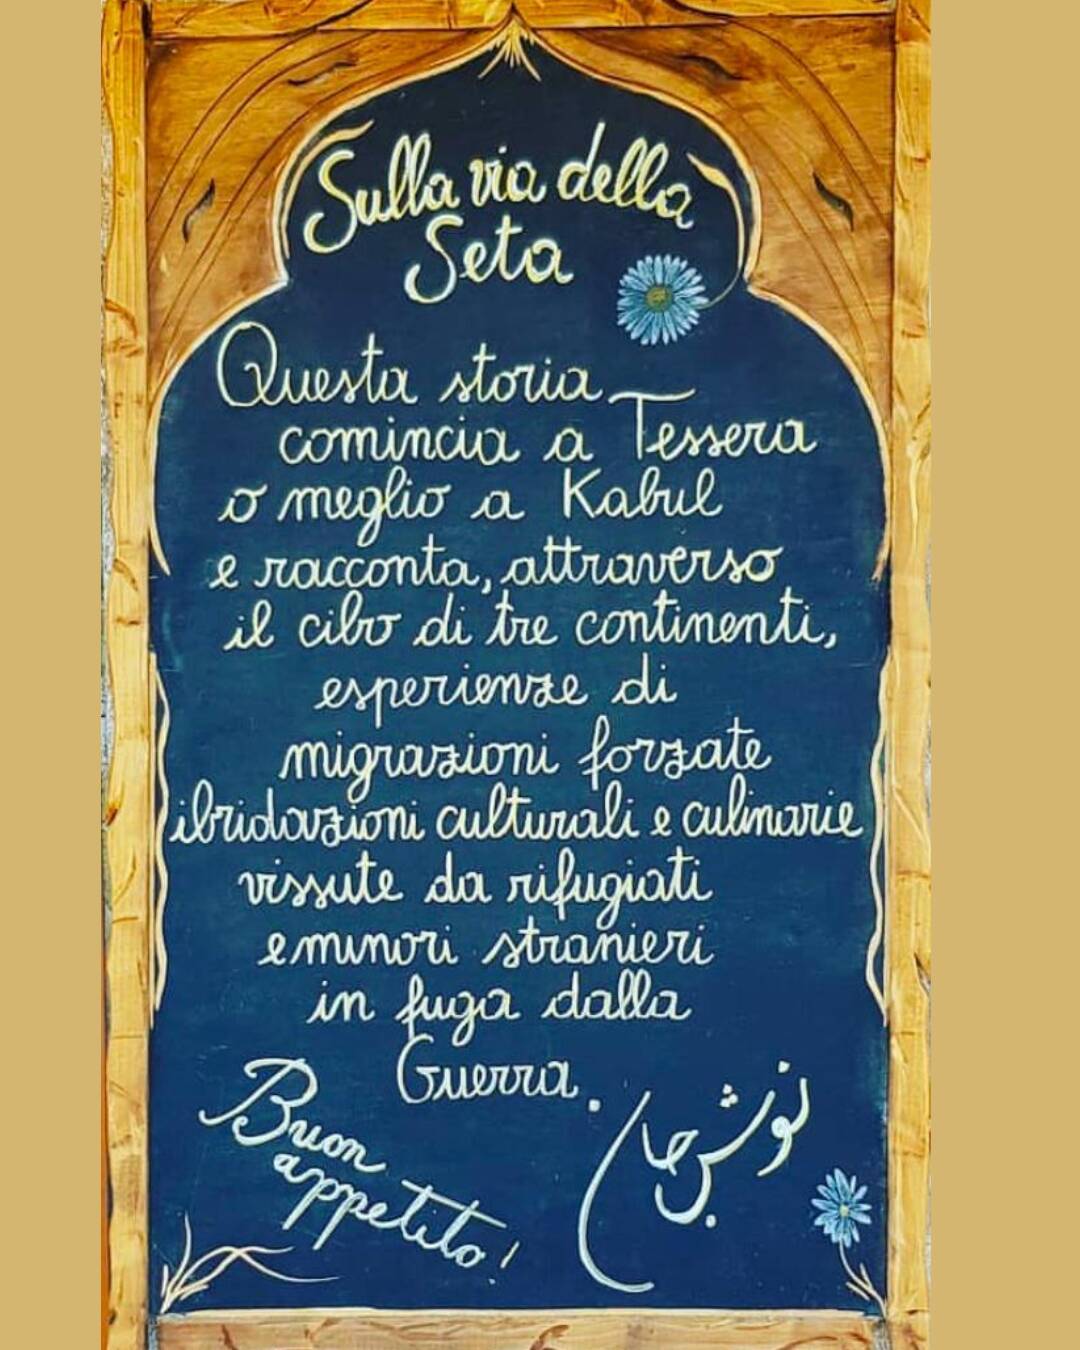 Sulla via della
Seta
Questa storia
comincia a Tessera
o meglio a Kabul
e racconta, attraverso
il cibo di tre continenti,
esperienze di
migrazioni forzate
ibridazioni culturali e culinarie
vissute da rifugiati
e minori stranieri
in fuga dalla
Guerra.
Buon
appetito!
نوش جان